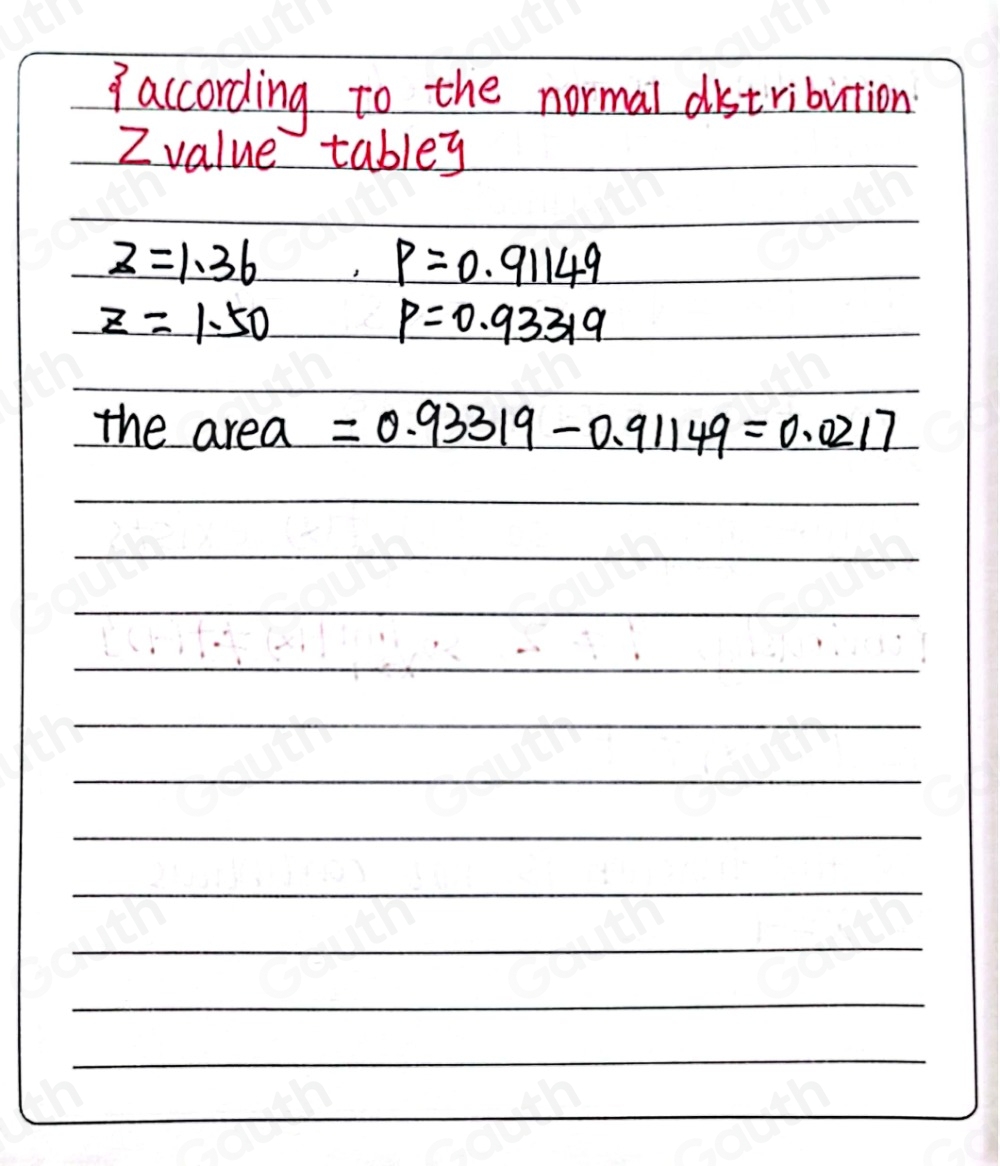 {according to the normal distribution
Z value table}
z=1.36 , P=0.91149
z=1.50 P=0.93319
the area = 0.93319-0.91149=0.0217